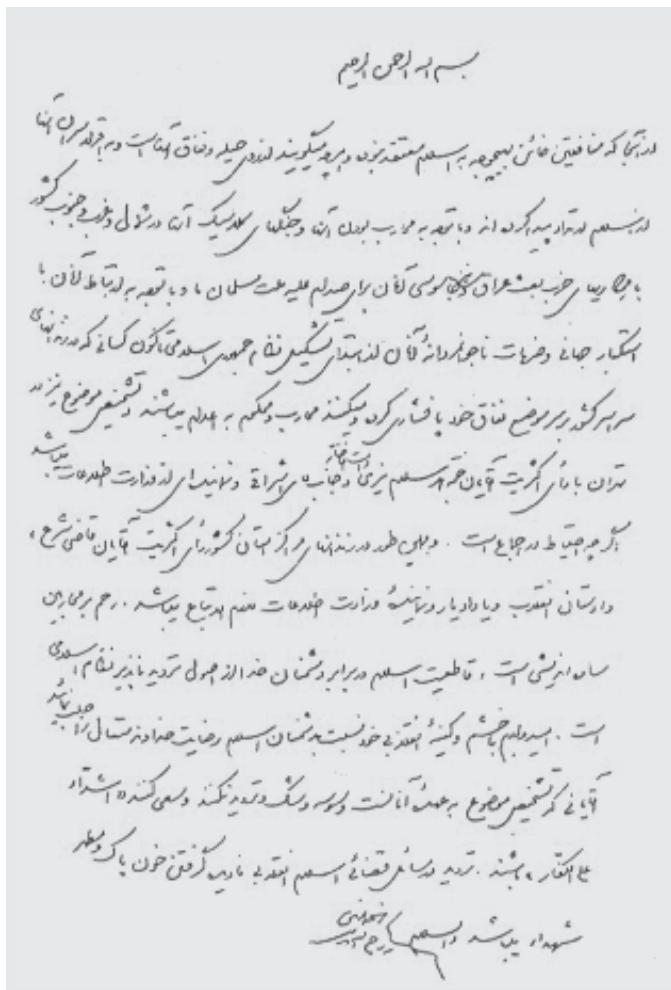 بسم الله الرحمن الرحیم
از آنجا که منافقین خائن بهیچوجه به اسلام معتقد نبوده و هر چه میگویند از روی حیله و نفاق آنهاست و به اقرار سران آنها
از اسلام ارتداد پیدا کرده‌اند و با توجه به محارب بودن آنها و جنگهای کلاسیک آنها در شمال و غرب و جنوب کشور
با همکاریهای حزب بعث عراق و نیز جاسوسی آنان برای صدام علیه ملت مسلمان ما و با توجه به ارتباط آنان با
استکبار جهانی و ضربات ناجوانمردانهٔ آنان از ابتدای تشکیل نظام جمهوری اسلامی تا کنون کسانی که در زندانهای
سراسر کشور بر سر موضع نفاق خود پافشاری کرده و میکنند محارب و محکوم به اعدام میباشند و تشخیص موضوع نیز در
تهران با رأی اکثریت آقایان حجةالاسلام نیری دامت افاضاته و جناب آقای اشراقی و نماینده‌ای از وزارت اطلاعات میباشد
اگر چه احتیاط در اجماع است . و همین طور در زندانهای مراکز استان کشور رأی اکثریت آقایان قاضی شرع ،
دادستان انقلاب و یا دادیار و نمایندهٔ وزارت اطلاعات لازم الاتباع میباشد . رحم بر محاربین
ساده‌اندیشی است ، قاطعیت اسلام در برابر دشمنان خدا از اصول تردیدناپذیر نظام اسلامی
است . امیدوارم با خشم و کینهٔ انقلابی خود نسبت به دشمنان اسلام رضایت خداوند متعال را جلب نمائید
آقایانی که تشخیص موضوع به عهدهٔ آنان است وسوسه و شک و تردید نکنند و سعی کنند « اشداء
علی الکفار » باشند . تردید در مسائل قضائی اسلام انقلابی نادیده گرفتن خون پاک و مطهر
شهداء میباشد والسلام
روح الله الموسوی الخمینی